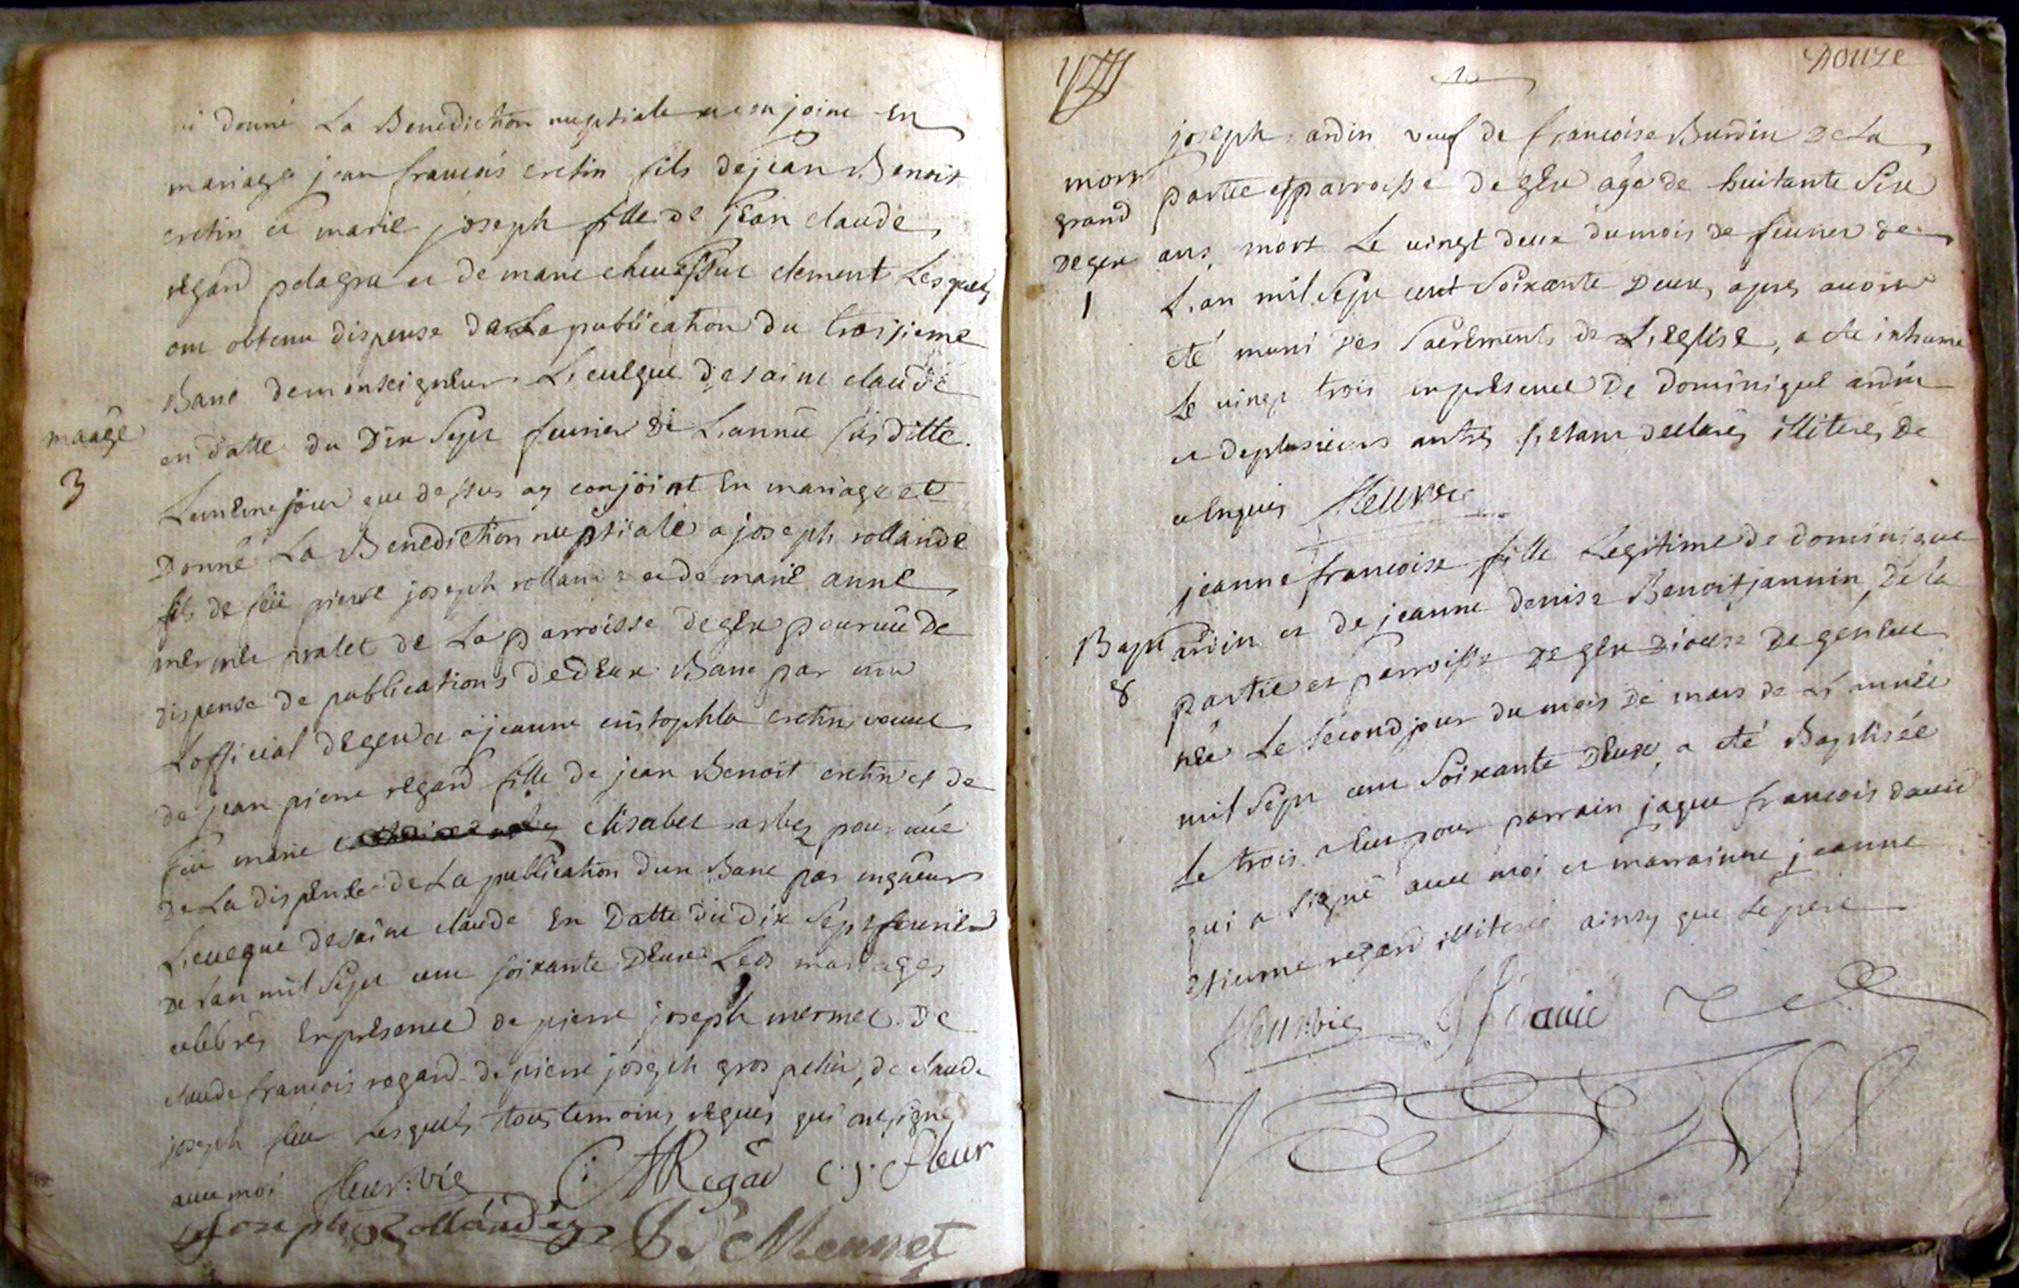 ai donné La Benediction nuptiale et conjoint En
mariage jean francois cretin fils dejean Benoit
cretin et marie joseph fille de jean claude
regard pelagru et de marie clement Lesquels
ont obtenu dispense de La publication du troisieme
Banc demonseigneur L'eveque desaint claude
en datte du Dix Sept fevrier de L'année susditte.
mariage
3
Lemême jour que dessus ay conjoint En mariage et
Donné La Benediction nuptiale a joseph rollande
fils de feü pierre joseph rollande et de marie anne
mermet de La parroisse degex pourvû De
dispense de publications De Deux Banc par
L'official degex et a jeanne cristophla cretin veuve
de jean pierre regard fille de jean Benoit cretin et de
feüe marie elisabet pourvuë
De La dispense de La publication d'un Banc par
L'eveque desaint claude En Datte du dix Sept fevrier
De l'an mil Sept cent soixante Deux Les mariages
celebrés En présence de pierre joseph mermet De
claude francois regard de pierre joseph gros pelin, de claude
joseph fleur Lesquels tous temoins requis qui ont signé
avec moi fleur: vic C f Regad c. j. fleur
joseph Rollandez P j Mermet
Douze
joseph ardin veuf de francoise Burdin De La
mort
grand
Degex
1
partie et parroisse De gex âgé de huitante Six
ans, mort Le vingt deux dumois de fevrier de
L'an mil Sept cent Soixante Deux, apres avoir
eté muni des Sacrements de L'eglise, a eté inhumé
Le vingt trois en présence De dominique ardin
et deplusieurs autres s'etant declarés illiterés De
ce Enquis fleur vic
jeanne francoise fille Legitime de dominique
Bapt
8
ardin et de jeanne denise Benoit jannin, De la
partie et parroisse De gex Diocese De genève
née Le second jour du mois de mars de L'année
mil Sept cent Soixante Deux a eté Baptisée
Le trois a eu pour parrain jaque francois david
qui a Signé avec moi et marrainne jeanne
etienne regard illiterée ainsy que Le pere
fleur: vic J f David